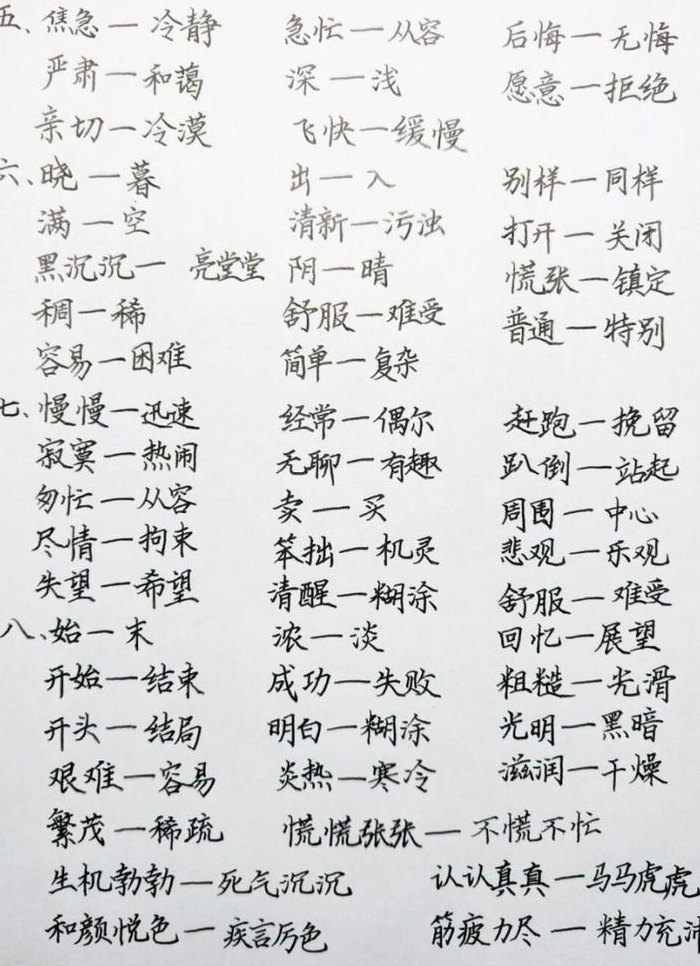 五、焦急—冷静 急忙—从容 后悔—无悔
严肃—和蔼 深—浅 愿意—拒绝
亲切—冷漠 飞快—缓慢
六、晓—暮 出—入 别样—同样
满—空 清新—污浊 打开—关闭
黑沉沉—亮堂堂 阴—晴 慌张—镇定
稠—稀 舒服—难受 普通—特别
容易—困难 简单—复杂
七、慢慢—迅速 经常—偶尔 赶跑—挽留
寂寞—热闹 无聊—有趣 趴倒—站起
匆忙—从容 卖—买 周围—中心
尽情—拘束 笨拙—机灵 悲观—乐观
失望—希望 清醒—糊涂 舒服—难受
八、始—末 浓—淡 回忆—展望
开始—结束 成功—失败 粗糙—光滑
开头—结局 明白—糊涂 光明—黑暗
艰难—容易 炎热—寒冷 滋润—干燥
繁茂—稀疏 慌慌张张—不慌不忙
生机勃勃—死气沉沉 认认真真—马马虎虎
和颜悦色—疾言厉色 筋疲力尽—精力充沛